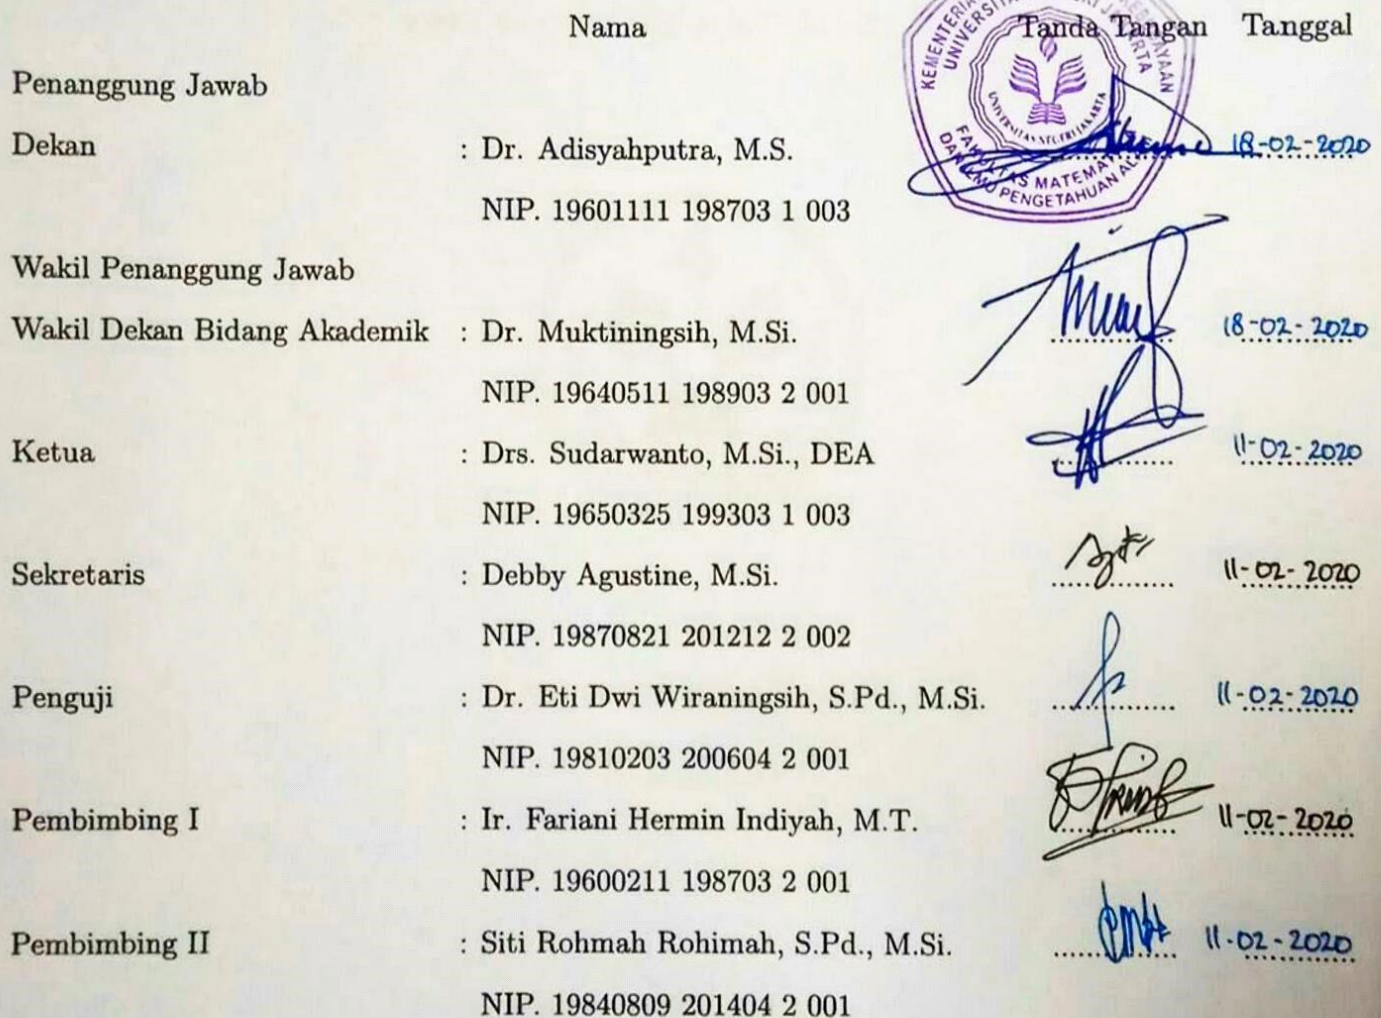 Nama Tanda Tangan Tanggal
Penanggung Jawab
Dekan : Dr. Adisyahputra, M.S. 18-02-2020
NIP. 19601111 198703 1 003
Wakil Penanggung Jawab
Wakil Dekan Bidang Akademik : Dr. Muktiningsih, M.Si. 18-02-2020
NIP. 19640511 198903 2 001
Ketua : Drs. Sudarwanto, M.Si., DEA 11-02-2020
NIP. 19650325 199303 1 003
Sekretaris : Debby Agustine, M.Si. 11-02-2020
NIP. 19870821 201212 2 002
Penguji : Dr. Eti Dwi Wiraningsih, S.Pd., M.Si. 11-02-2020
NIP. 19810203 200604 2 001
Pembimbing I : Ir. Fariani Hermin Indiyah, M.T. 11-02-2020
NIP. 19600211 198703 2 001
Pembimbing II : Siti Rohmah Rohimah, S.Pd., M.Si. 11-02-2020
NIP. 19840809 201404 2 001
UNIVERSITAS NEGERI JAKARTA
FAKULTAS MATEMATIKA
PENGETAHUAN